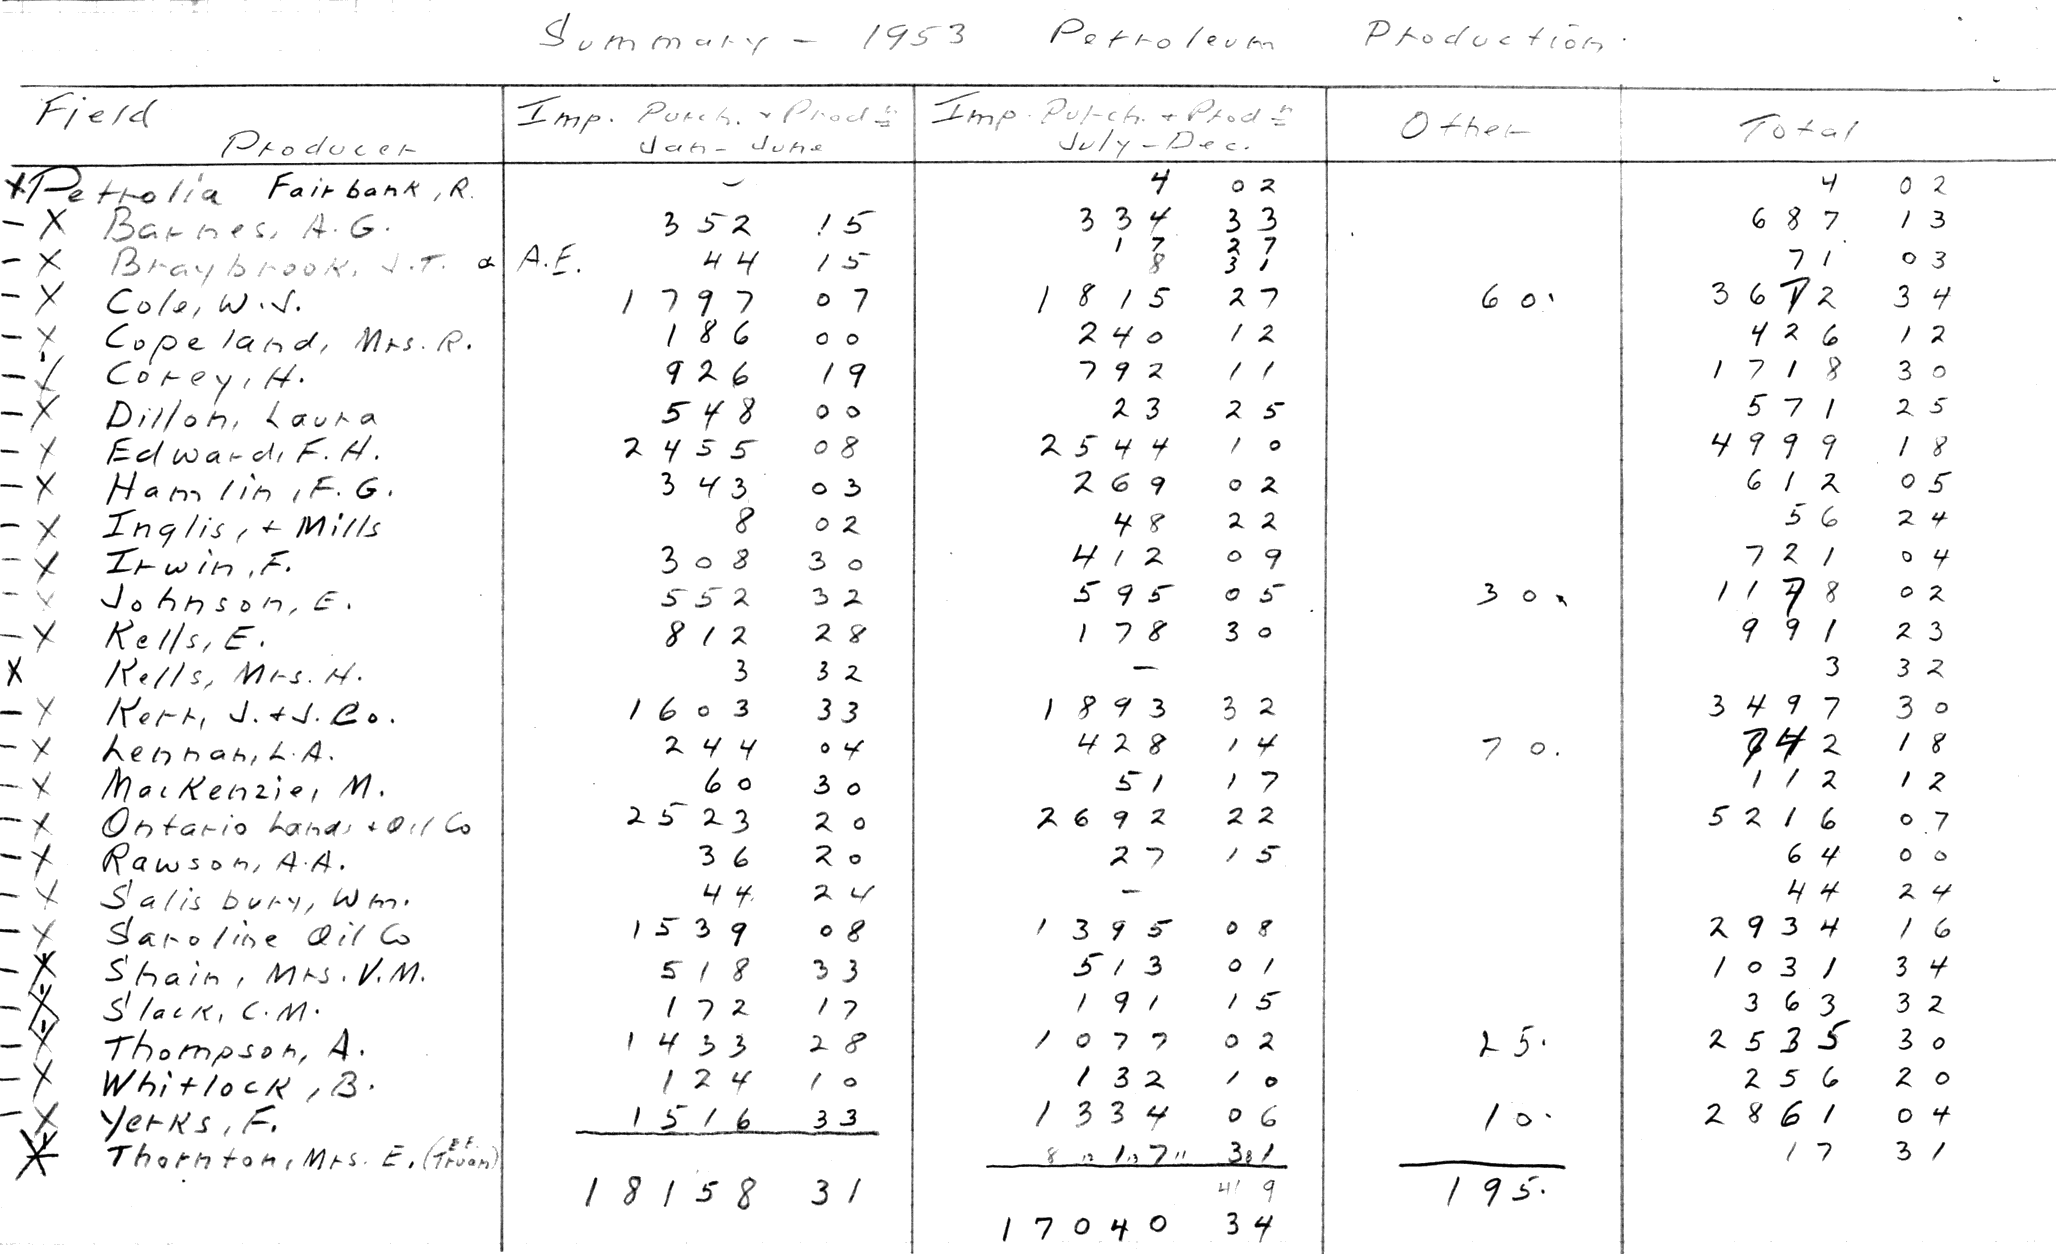 Summary - 1953 Petroleum Production.
Field Producer Imp. Purch. + Prod<u>n</u> Jan-June Imp. Purch. + Prod<u>n</u> July-Dec. Other Total
x Petrolia Fairbank, R. - 4 02 4 02
- X Barnes, A.G. 352 15 334 33 687 13
- X Braybrook, J.T. & A.E. 44 15 17 27 8 31 71 03
- X Cole, W.J. 1797 07 1815 27 60. 3672 34
- X Copeland, Mrs. R. 186 00 240 12 426 12
- X Corey, H. 926 19 792 11 1718 30
- X Dillon, Laura 548 00 23 25 571 25
- X Edward, F.H. 2455 08 2544 10 4999 18
- X Hamlin, F.G. 343 03 269 02 612 05
- X Inglis, + Mills 8 02 48 22 56 24
- X Irwin, F. 308 30 412 09 721 04
- X Johnson, E. 552 32 595 05 30. 1178 02
- X Kells, E. 812 28 178 30 991 23
X Kells, Mrs. H. 3 32 - 3 32
- X Kerr, J. + J. Co. 1603 33 1893 32 3497 30
- X Lennan, L.A. 244 04 428 14 70. 742 18
- X MacKenzie, M. 60 30 51 17 112 12
- X Ontario Lands + Oil Co 2523 20 2692 22 5216 07
- X Rawson, A.A. 36 20 27 15 64 00
- X Salisbury, Wm. 44 24 - 44 24
- X Saroline Oil Co 1539 08 1395 08 2934 16
- X Shain, Mrs. V.M. 518 33 513 01 1031 34
- X Slack, C.M. 172 17 191 15 363 32
- X Thompson, A. 1433 28 1077 02 25. 2535 30
- X Whitlock, B. 124 10 132 10 256 20
- X Yerks, F. 1516 33 1334 06 10. 2861 04
X Thornton, Mrs. E. (Truan) 17 31 17 31
18158 31 195.
17040 34